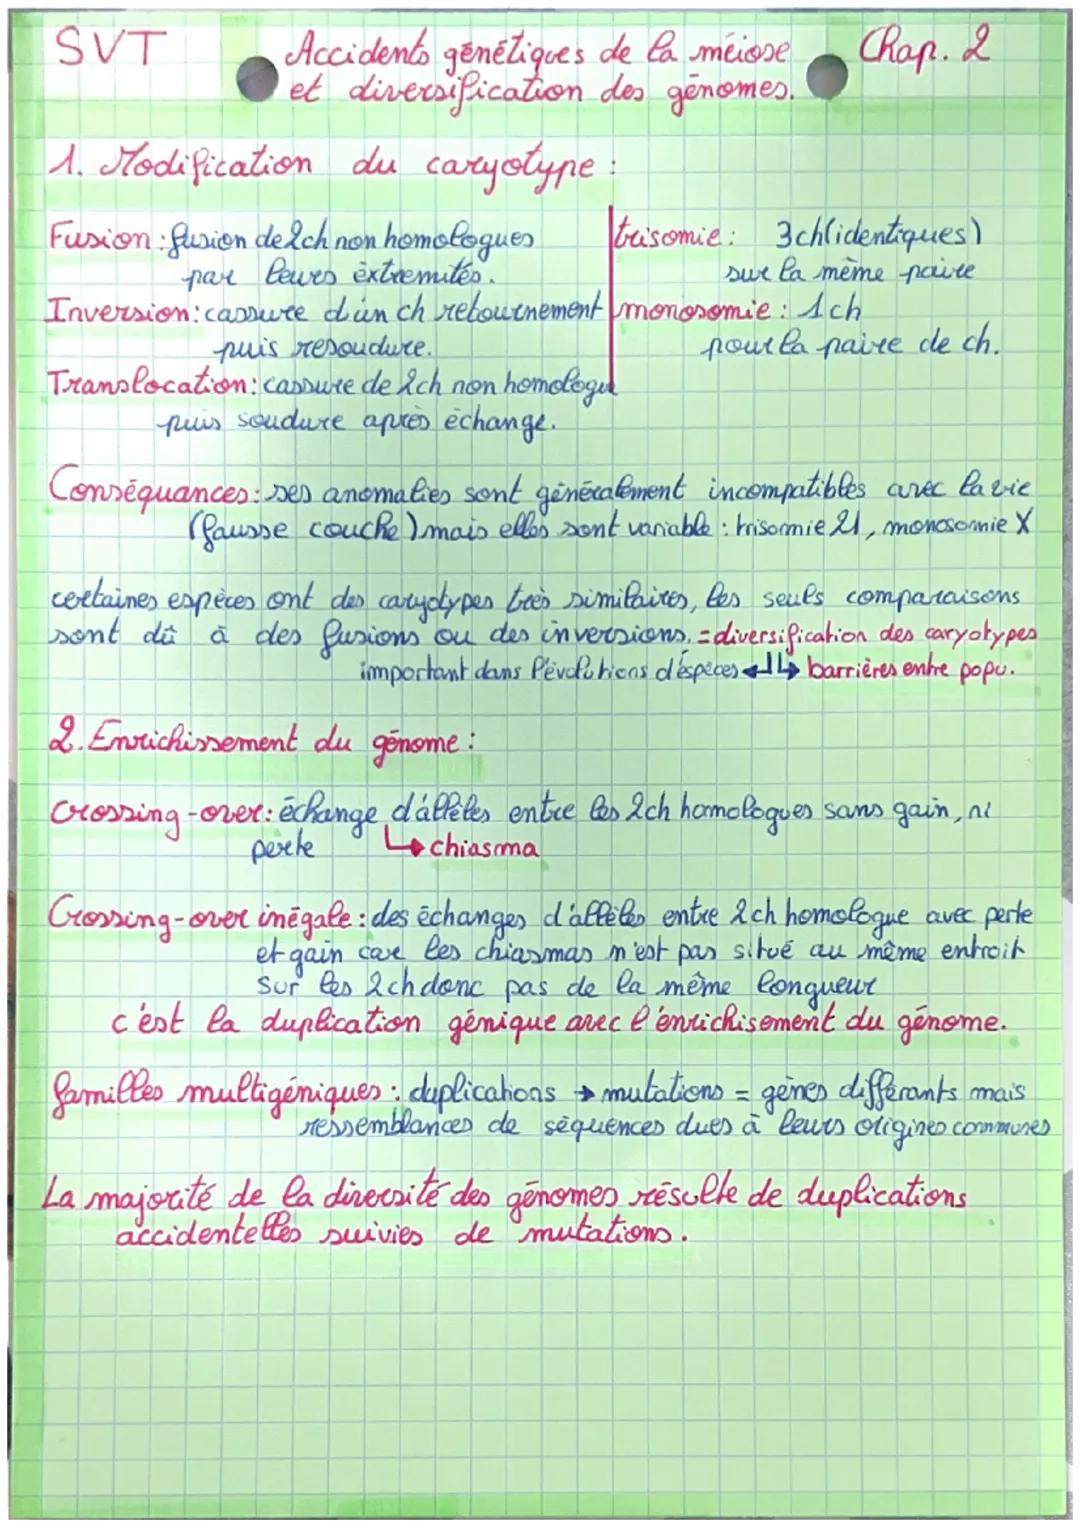 SVT
Accidents génétiques de la méiose
et diversification des génomes.
Chap. 2
1. Modification du caryotype :
Fusion : fusion de 2ch non homologues
par leurs extremités.
Inversion : cassure d'un ch retournement
puis resoudure.
Translocation : cassure de 2ch non homologue
puis soudure après échange.
trisomie : 3ch(identiques)
sur la même paire
monosomie : 1ch
pour la paire de ch.
Conséquances : ses anomalies sont généralement incompatibles avec la vie
(fausse couche) mais elles sont variable : trisomie 21, monosomie X
certaines espèces ont des caryotypes très similaires, les seuls comparaisons
sont dû à des fusions ou des inversions. = diversification des caryotypes
important dans l'évolutions d'éspèces ↲↳ barrières entre popu.
2. Enrichissement du génome :
Crossing-over : échange d'allèles entre les 2ch homologues sans gain, ni
perte ↳ chiasma
Crossing-over inégale : des échanges d'allèles entre 2ch homologue avec perte
et gain car les chiasmas n'est pas situé au même entroit
sur les 2ch donc pas de la même longueur
c'est la duplication génique avec l'enrichisement du génome.
familles multigéniques : duplications → mutations = gènes différants mais
ressemblances de séquences dues à leurs origines communes
La majorité de la diversité des génomes résulte de duplications
accidentelles suivies de mutations.